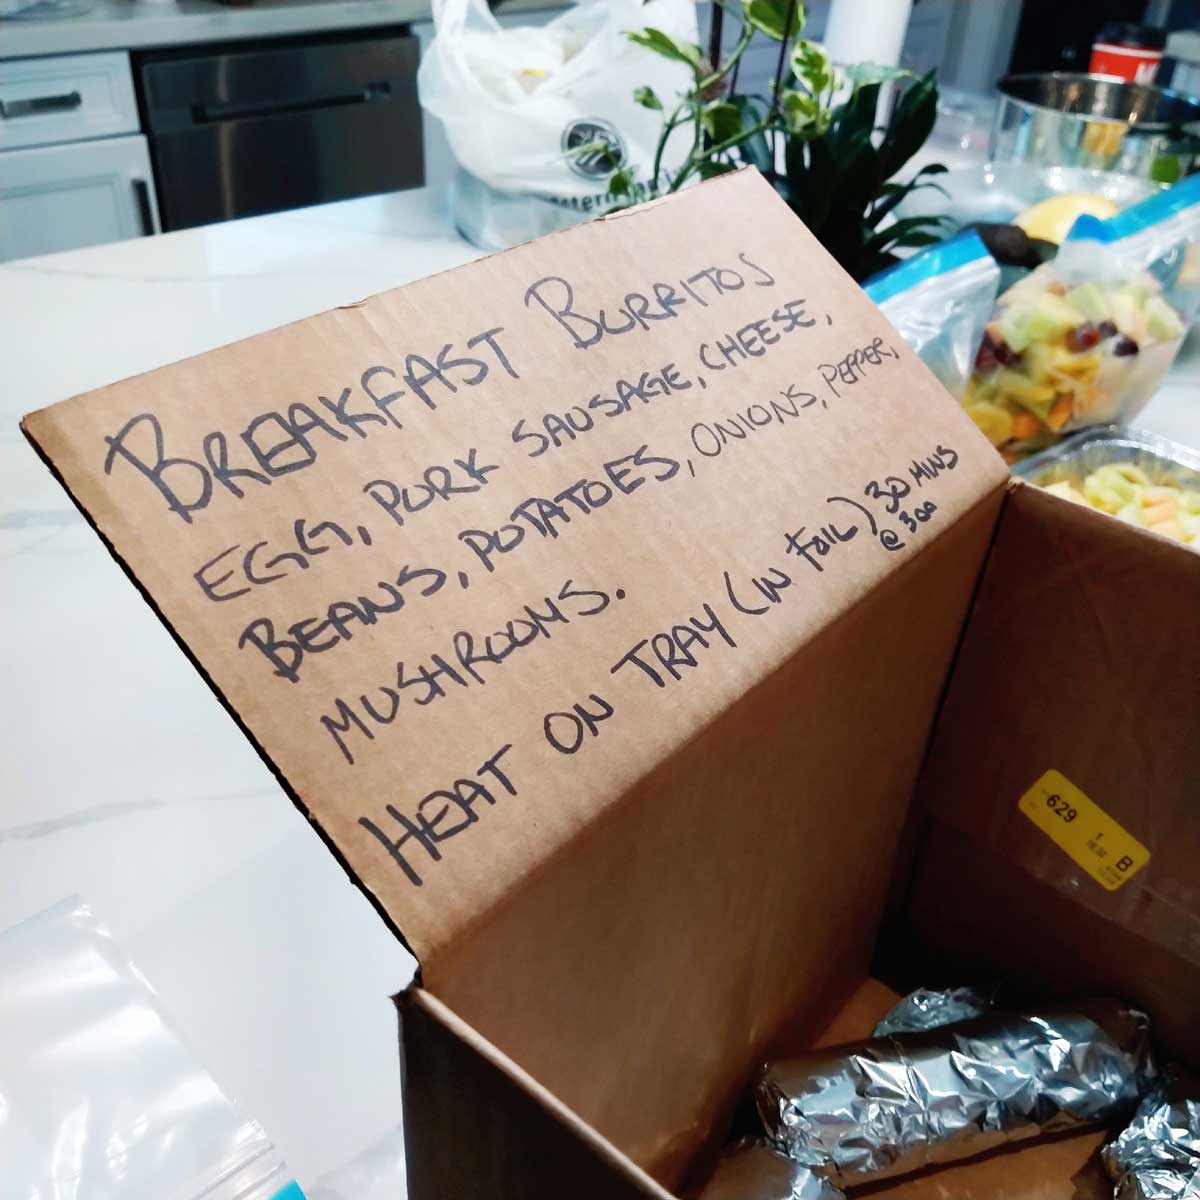 BREAKFAST BURRITOS
EGG, PORK SAUSAGE, CHEESE,
BEANS, POTATOES, ONIONS, PEPPER,
MUSHROOMS.
HEAT ON TRAY (IN FOIL) 30 MINS
@ 300
629 1 B